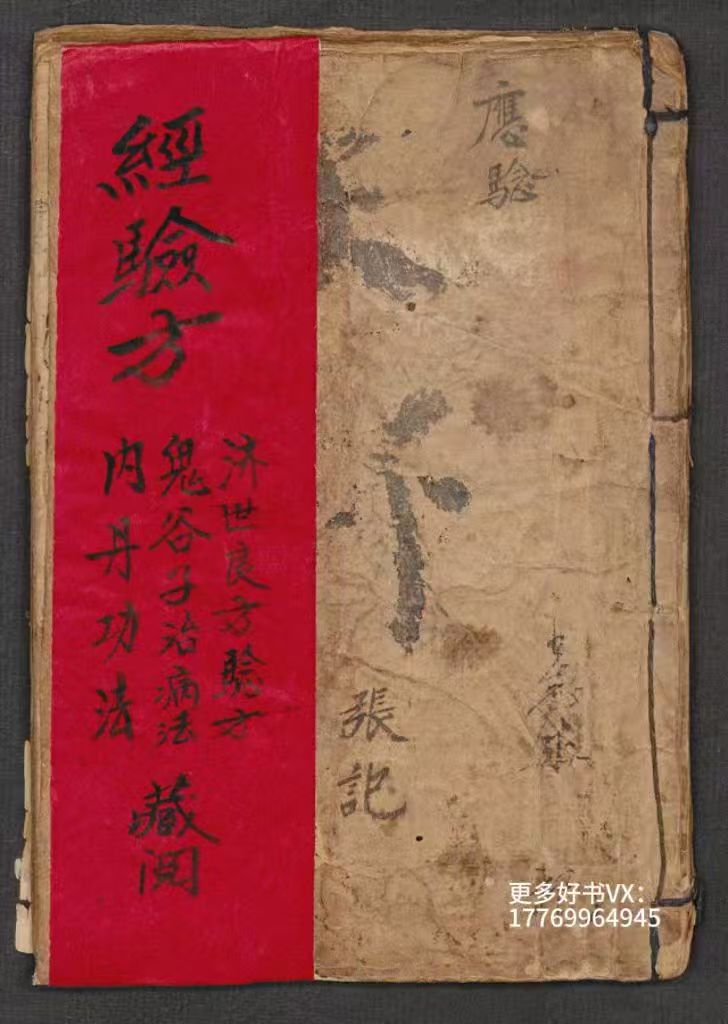 應驗
張記
經驗方
济世良方驗方
鬼谷子治病法
内丹功法
藏阅
更多好书VX：
17769964945